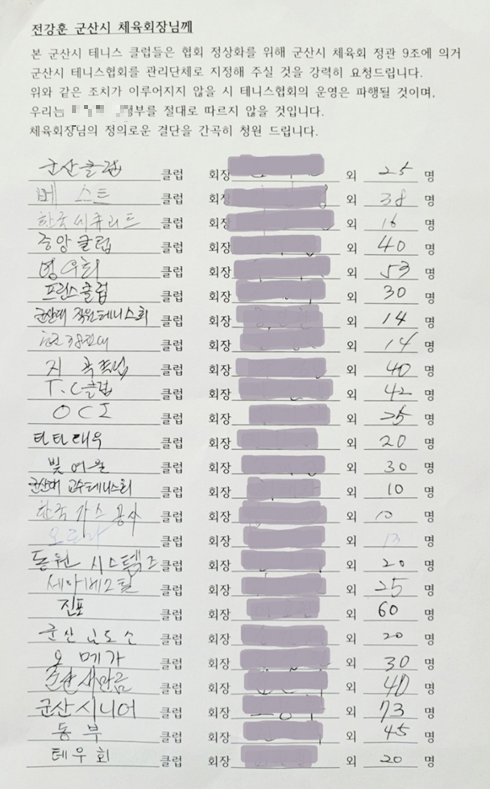 전강훈 군산시 체육회장님께
본 군산시 테니스 클럽들은 협회 정상화를 위해 군산시 체육회 정관 9조에 의거
군산시 테니스협회를 관리단체로 지정해 주실 것을 강력히 요청드립니다.
위와 같은 조치가 이루어지지 않을 시 테니스협회의 운영은 파행될 것이며,
우리는 행부를 절대로 따르지 않을 것입니다.
체육회장님의 정의로운 결단을 간곡히 청원 드립니다.
군산클럽 클럽 회장 외 25 명
베스트 클럽 회장 외 38 명
한국시큐리트 클럽 회장 외 16 명
중앙클럽 클럽 회장 외 40 명
클럽 회장 외 53 명
프린스클럽 클럽 회장 외 30 명
군산대 직원테니스회 클럽 회장 외 14 명
클럽 회장 외 14 명
지곡 클럽 회장 외 40 명
T.C클럽 클럽 회장 외 42 명
OCI 클럽 회장 외 25 명
타타대우 클럽 회장 외 20 명
클럽 회장 외 30 명
군산대 교수테니스회 클럽 회장 외 10 명
한국가스공사 클럽 회장 외 10 명
클럽 회장 외 13 명
동원시스템즈 클럽 회장 외 20 명
세아베스틸 클럽 회장 외 25 명
진포 클럽 회장 외 60 명
군산교도소 클럽 회장 외 20 명
오메가 클럽 회장 외 30 명
군산새만금 클럽 회장 외 40 명
군산시니어 클럽 회장 외 73 명
동부 클럽 회장 외 45 명
테우회 클럽 회장 외 20 명